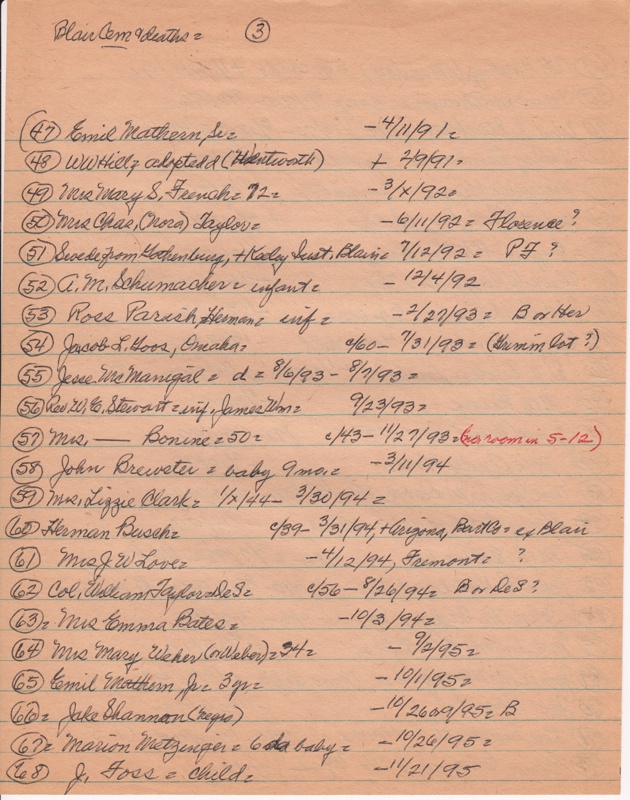 Blair Cem & deaths = (3)
(47) Emil Mathern, Sr = - 4/11/91 =
(48) WW Hill = adopted d (Wentworth) + 2/9/91 =
(49) Mrs Mary S, French = 72 = - 3/x/92 =
(50) Mrs Chas, (Nora) Taylor = - 6/11/92 = Florence ?
(51) Swede from Gothenburg, + Keeley Inst., Blair = 7/12/92 = P F ?
(52) A. M, Schumacher = infant = - 12/4/92
(53) Ross Parish, Herman = inf = - 2/27/93 = B or Her
(54) Jacob L. Goos, Omaha = c/60 - 7/31/93 = (Grimm lot ?)
(55) Jesse McManigal = d = 8/6/93 - 8/7/93 =
(56) Rev. W. E, Stewart = inf, James Wm = 9/23/93 =
(57) Mrs, — Bonine = 50 = c/43 - 11/27/93 = (no room in 5-12)
(58) John Brewster = baby 9 mo = - 3/11/94
(59) Mrs, Lizzie Clark = 1/x/44 - 3/30/94 =
(60) Herman Busch = c/39 - 3/31/94, + Arizona, Burt Co = ex Blair
(61) Mrs J. W Love = - 4/12/94, Fremont = ?
(62) Col, William, Taylor = DeS = c/56 - 8/26/94 = B or DeS ?
(63) = Mrs Emma Bates = - 10/3/94 =
(64) Mrs Mary Weher (or Weber) = 34 = - 9/2/95 =
(65) Emil Mathern Jr = 3 yr = - 10/1/95 =
(66) = Jake Shannon (negro) - 10/26 or 9/95 = B
(67) = Marion Metzinger = 6 da baby = - 10/26/95 =
(68) J, Foss = child = - 11/21/95